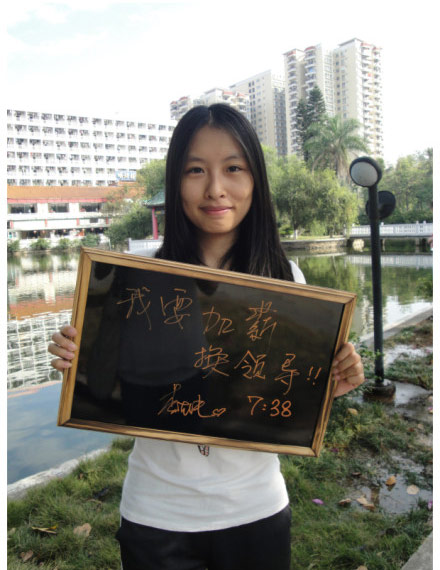 我要加薪
换领导!!
7:38